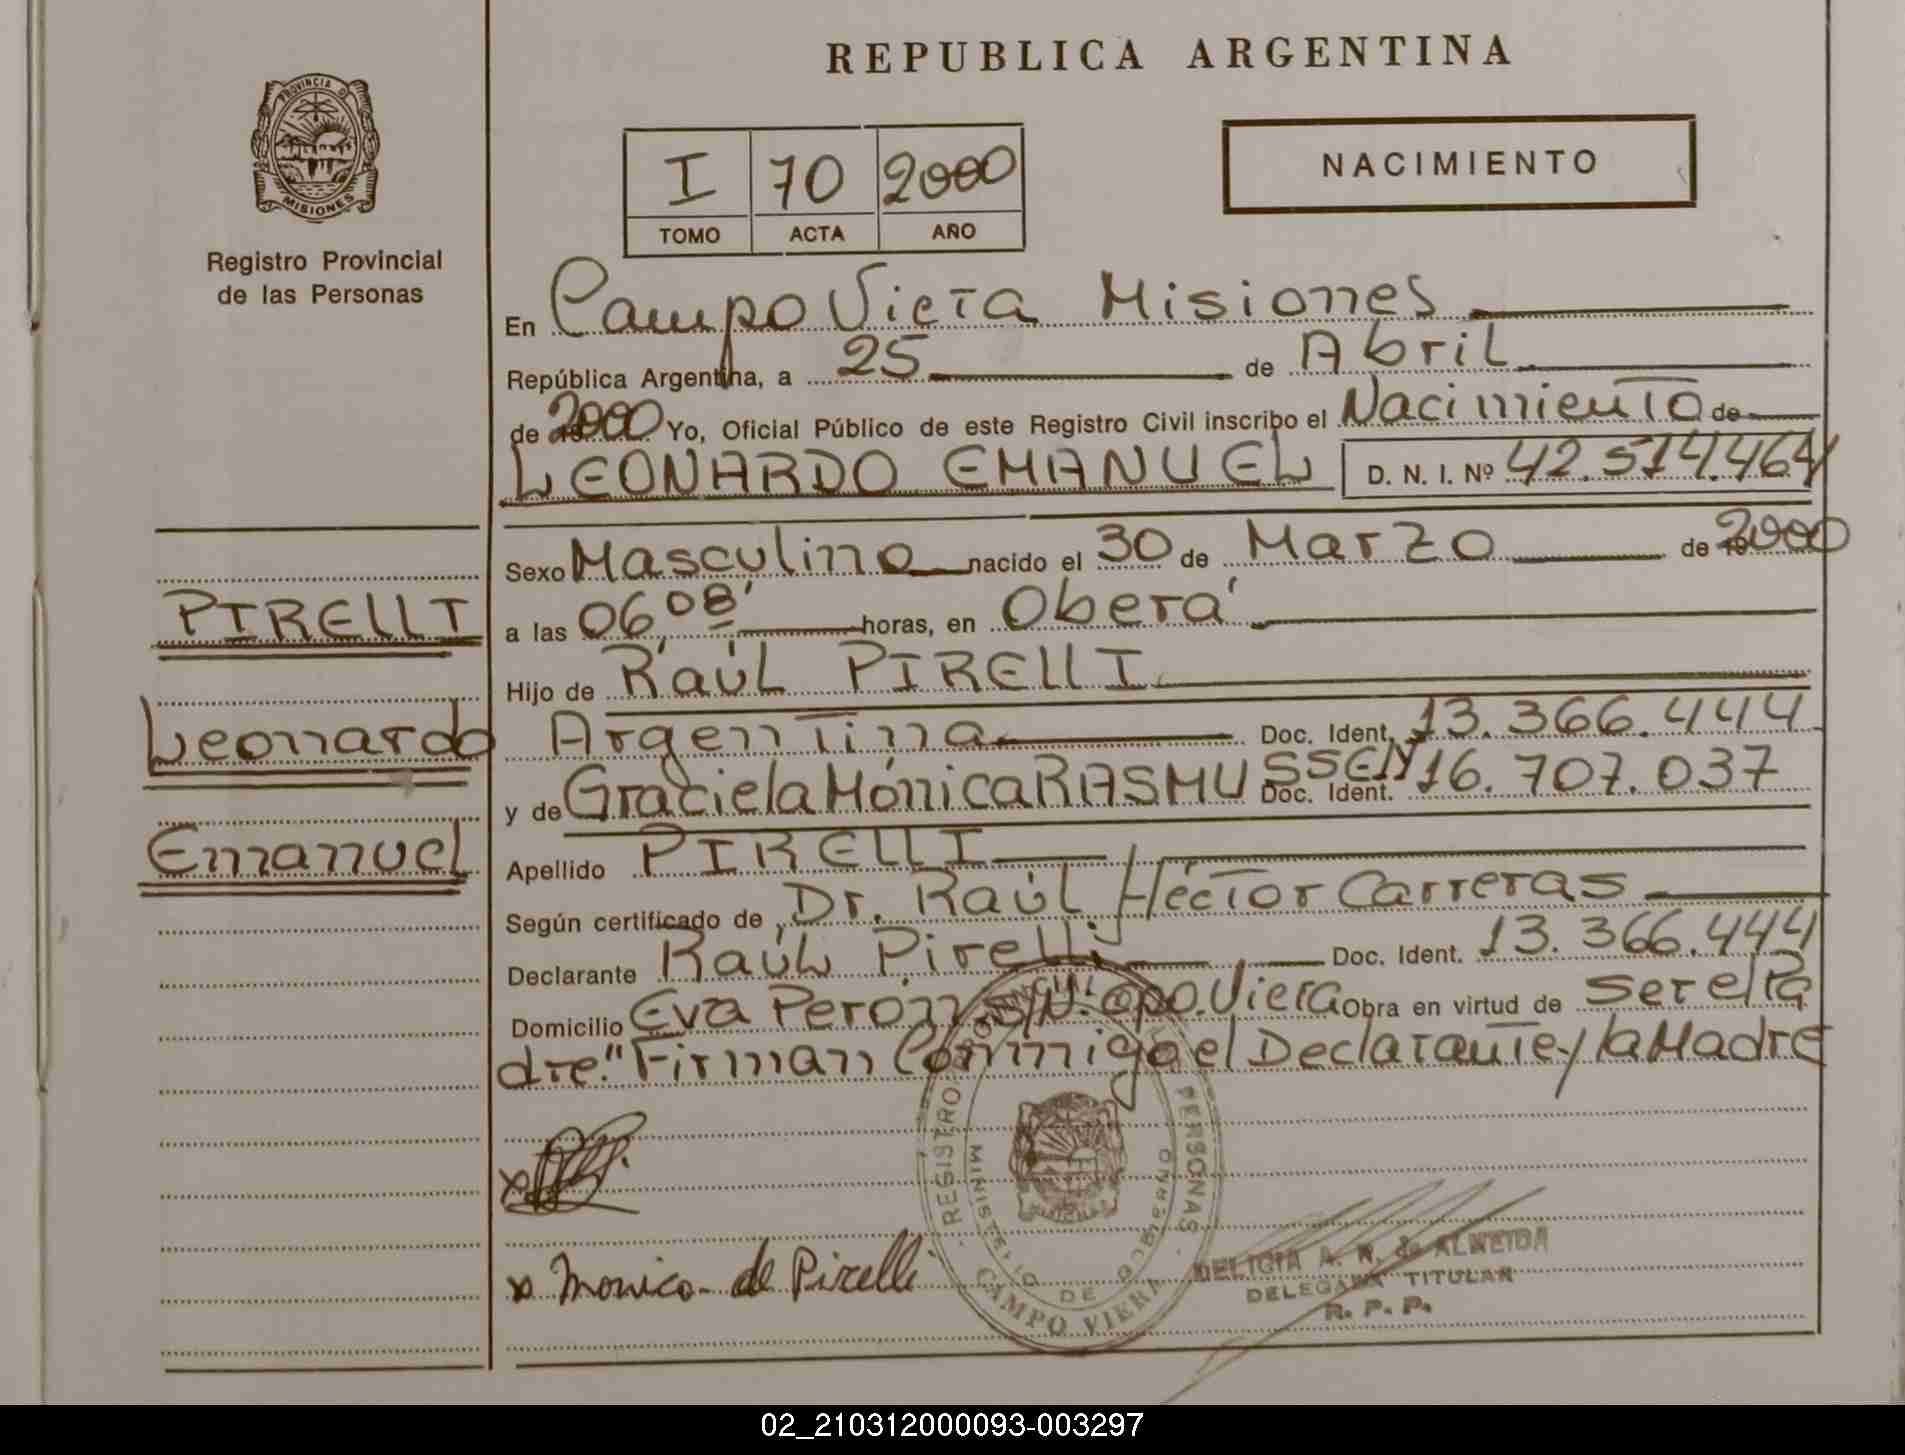 REPUBLICA ARGENTINA
PROVINCIA D
MISIONES
Registro Provincial
de las Personas
I 70 2000
TOMO ACTA AÑO
NACIMIENTO
En Campo Viera Misiones
República Argentina, a 25 de Abril
de 2000 Yo, Oficial Público de este Registro Civil inscribo el Nacimiento de
LEONARDO EMANUEL D. N. I. Nº 42.574.464
Sexo Masculino nacido el 30 de Marzo de 2000
a las 06,08' horas, en Oberá
Hijo de Raúl PIRELLI
Argentina Doc. Ident. 13.366.444
y de Graciela Mónica RASMUSSEN Doc. Ident. 16.707.037
Apellido PIRELLI
Según certificado de Dr. Raúl Héctor Carreras
Declarante Raúl Pirelli Doc. Ident. 13.366.444
Domicilio Eva Perón S/N. Cpo. Viera Obra en virtud de ser el Pa
dre." Firman Conmigo el Declarante y la Madre
PIRELLI
Leonardo
Emanuel
x
x Monica de Pirelli
REGISTRO PROVINCIAL PERSONAS
MINISTERIO DE
CAMPO VIERA
DELICIA A. N. de ALMEIDA
DELEGADA TITULAR
R. P. P.
02_210312000093-003297